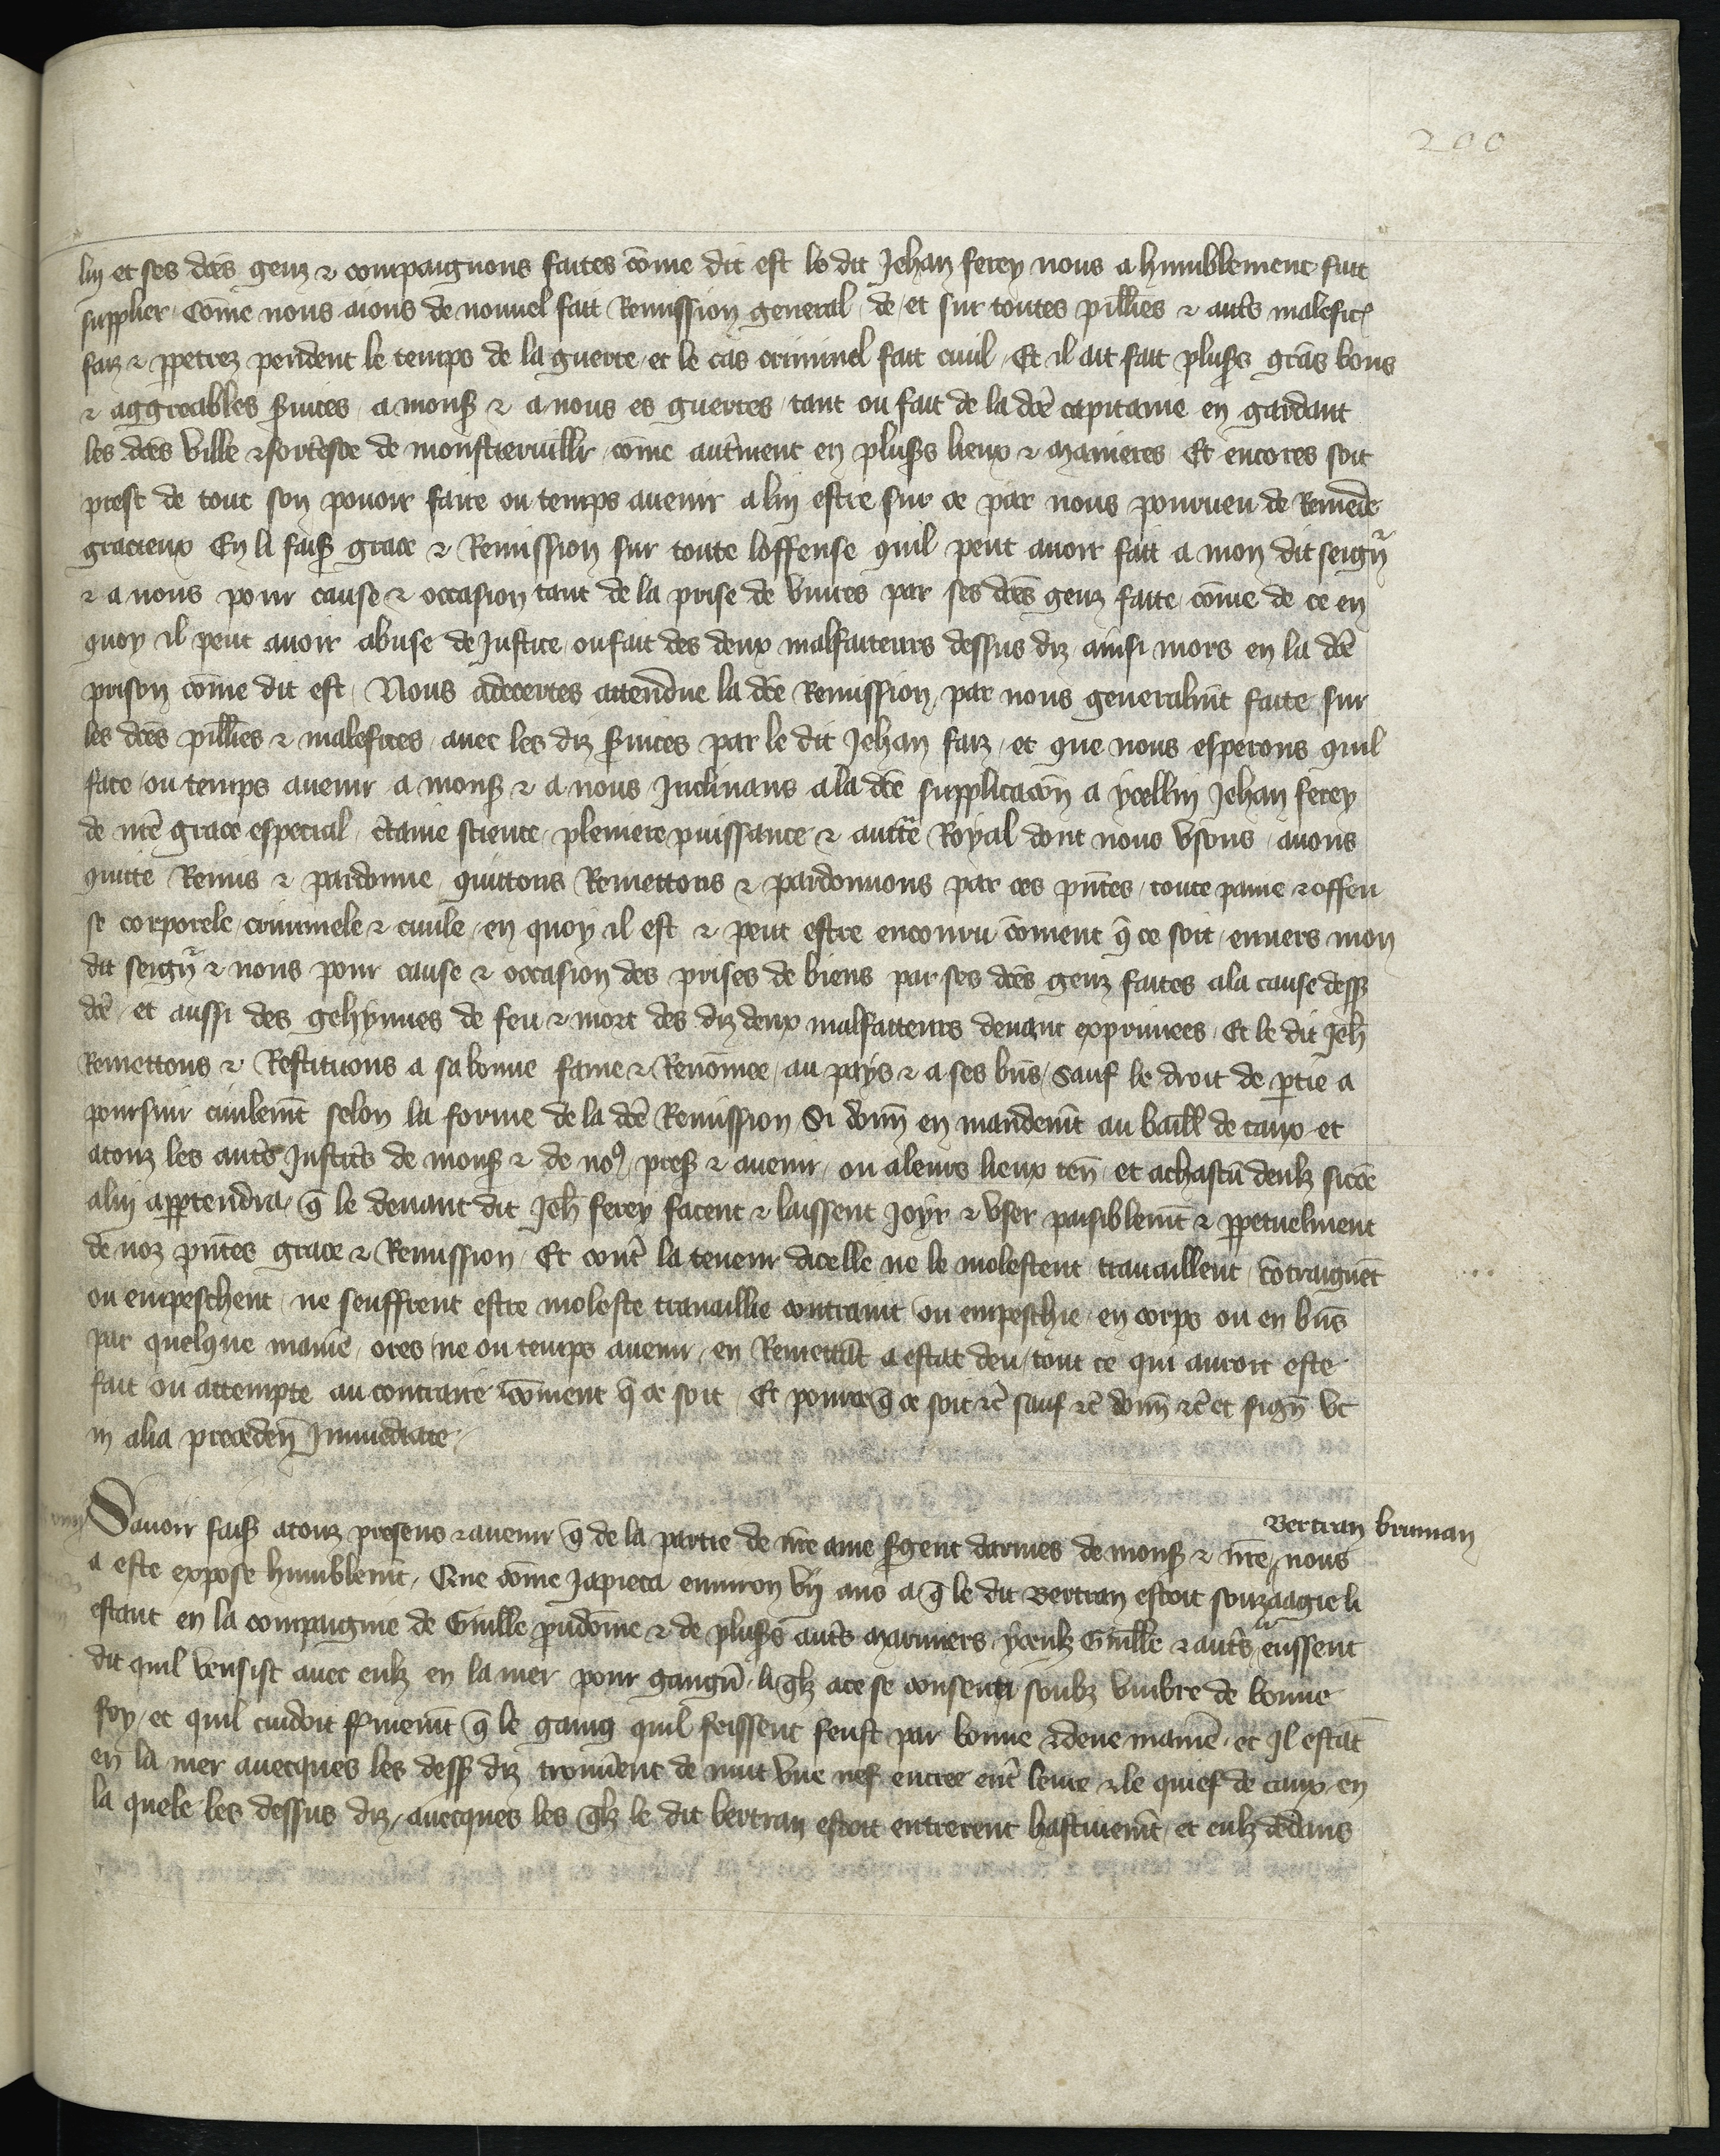 200
luy et ses dc̃es genz & compaignons faites cõme dit est le dit Jehan ferey nous a humblement fait
supplier Cõme nous aions de nouuel fait Remission general de et sur toutes pill̃ies & autr̃s malefic̃
faiz & ꝑpetrez pendent le temps de la guerre et le cas criminel fait ciuil Et il ait fait plus̃s gr̃ns bons
& aggreables s̃uices a mons̃ & a nous es guerres tant ou fait de la dc̃e capitainie en gardant
les dc̃es ville & fort̃esce de monstieruill̃r cõme autr̃ment en plus̃s lieux & manieres Et encores soit
prest de tout son pouoir faire ou temps auenir a luy estre sur ce par nous pourueu de Remede
gracieux En li fais̃ grace & Remission sur toute loffense quil peut auoir fait a mon dit seign̄r
& a nous pour cause & occasion tant de la prise de viures par ses dc̃es genz faite cõme de ce en
quoy il peut auoir abuse de Justice ou fait des deux malfaiteurs dessus diz ainsi mors en la dc̃e
prison cõme dit est Nous adecertes attendue la dc̃e Remission par nous generalm̃t faite sur
les dc̃es pill̃ies & malefices auec les diz s̃uices par le dit Jehan faiz et que nous esperons quil
face ou temps auenir a mons̃ & a nous Inclinans a la dc̃e supplicac̃on a ycelluy Jehan ferey
de nr̃e grace especial c̃taine science pleniere puissance & auctr̃e Royal dont nous vsons auons
quitte Remis & pardonne quittons Remettons & pardonnons par ces pñtes toute paine & offen
se corporele criminele & ciuile en quoy il est & peut estre encouru cõment q̃ ce soit enuers mon
dit seign̄r & nous pour cause & occasion des prises de biens par ses dc̃es genz faites a la cause dess̃
dc̃e et aussi des gehynnes de feu & mort des diz deux malfaiteurs deuant exprimees Et le dit Jeh̃
Remettons & Restituons a sa bonne fame & Renõmee au pays & a ses bñs Sauf le droit de ptie a
poursuir ciuilem̃t selon la forme de la dc̃e Remission Si donñ en mandem̃t au baill̃ de caux et
a touz les autr̃s Justic̃s de mons̃ & de noꝰ pres̃ & auenir ou a leurs lieux teñ et a chascũ deulz si cõe
a luy apptendra q̃ le deuant dit Jeh̃ ferey facent & laissent Joyr & vser paisiblem̃t & ꝑpetuelment
de noz pñtes grace & Remission Et contr̃ la teneur dicelle ne le molestent trauaillent cõtraignẽt
ou empeschent ne seuffrent estre moleste trauaillie contraint ou empeschie en corps ou en bñs
par quelque manie ores ne ou temps auenir en Remettãt a estat deu tout ce qui auroit este
fait ou attempte au contraire cõment q̃ ce soit Et pour ce q̃ ce soit &c̃ sauf &c̃ donñ &c̃ et signñ vt
in alia precedeñ Immediate
Bertran bruman
Sauoir fais̃ a touz presens & auenir q̃ de la partie de nr̃e ame s̃gent darmes de mons̃ & nr̃e nous
a este expose humblem̃t Que cõme Ja pieca enuiron vij ans a q̃ le dit Bertran estoit souz aagie li
estant en la compaignie de Guill̃e prudõme & de plus̃s autr̃s mariniers yceulz Guill̃e & autr̃s li eussent
dit quil vensist auec eulz en la mer pour gangñ li q̃lz a ce se consenti soubz vmbre de bonne
foy et quil cuidoit f̃mem̃t q̃ le gaing quil feissent feust par bonne & deue manie et Il estãt
en la mer auecques les dess̃ diz trouuẽrent de nuit vne nef encree entr̃ leure & le quief de caux en
la quele les dessus diz auecques les q̃lz le dit bertran estoit entrerent hastiuem̃t et eulz dedans